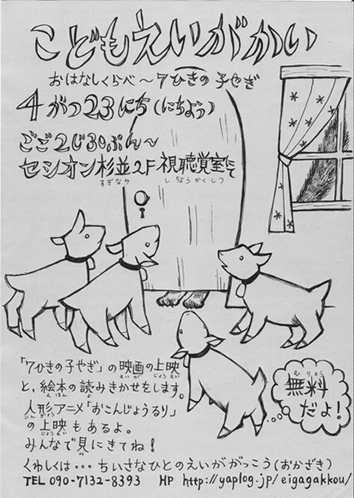 こどもえいがかい
おはなしくらべ～7ひきの子やぎ
4がつ23にち(にちよう)
ごご2じ30ぷん～
セシオン杉並2F視聴覚室にて
すぎなみ しちょうかくしつ
「7ひきの子やぎ」の映画の上映
えいが じょうえい
と、絵本の読みきかせをします。
えほん よ
人形アニメ「おこんじょうるり」
にんぎょう
の上映もあるよ。
じょうえい
みんなで見にきてね!
み
むりょう
無料
だよ!
くわしくは…ちいさなひとのえいががっこう(おかざき)
TEL 090-7132-8393 HP http://yaplog.jp/eigagakkou/